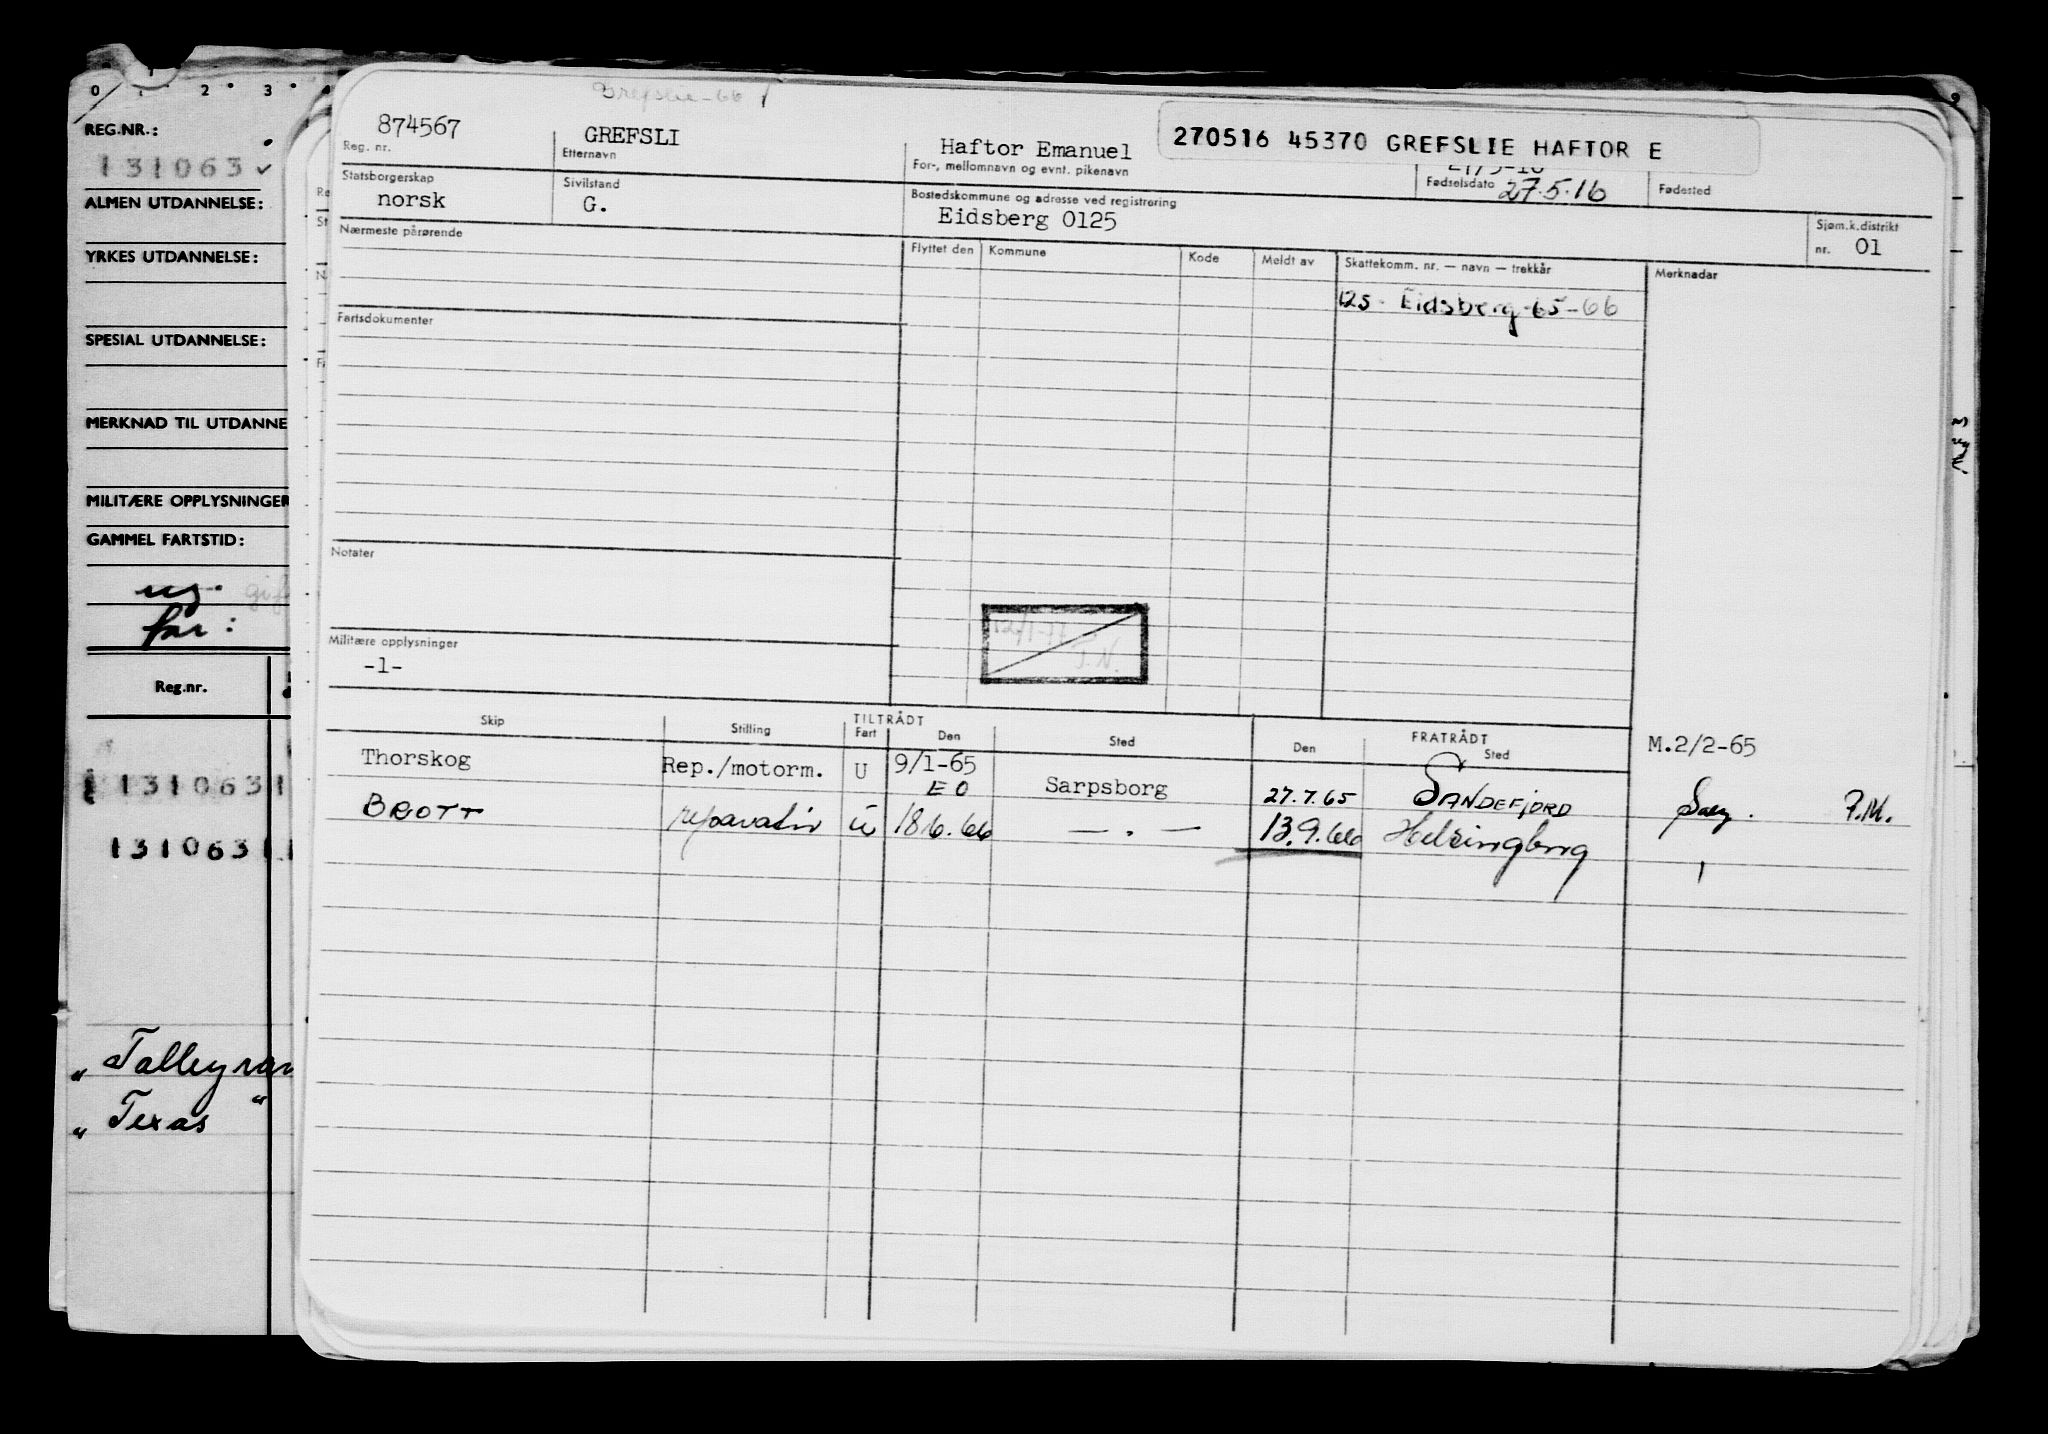 0 1 2 3
REG.NR.:
131063
ALMEN UTDANNELSE:
YRKES UTDANNELSE:
SPESIAL UTDANNELSE:
MERKNAD TIL UTDANNE
MILITÆRE OPPLYSNINGER
GAMMEL FARTSTID:
ug. gift
far:
Reg.nr.
131063
131063
" Talleyran
" Texas "
Grefslie-66
874567 GREFSLI Haftor Emanuel 270516 45370 GREFSLIE HAFTOR E
Reg. nr. Etternavn For-, mellomnavn og evnt. pikenavn Fødselsdato 27.5.16 Fødested
Statsborgerskap Sivilstand Bostedskommune og adresse ved registrering
norsk G. Eidsberg 0125
Sjøm.k.distrikt
nr. 01
Nærmeste pårørende Flyttet den Kommune Kode Meldt av Skattekomm. nr. — navn — trekkår Merknader
125 - Eidsberg-65-66
Fartsdokumenter
Notater
12/1-77
T.N.
Militære opplysninger
-1-
Skip Stilling TILTRÅDT Fart Den Sted FRATRÅDT Den Sted
M.2/2-65
Thorskog Rep./motorm. U 9/1-65 EO Sarpsborg 27.7.65 SANDEFJORD P.M.
BROTT reparatør U 18.6.66 — . — 13.9.66 Helsingborg